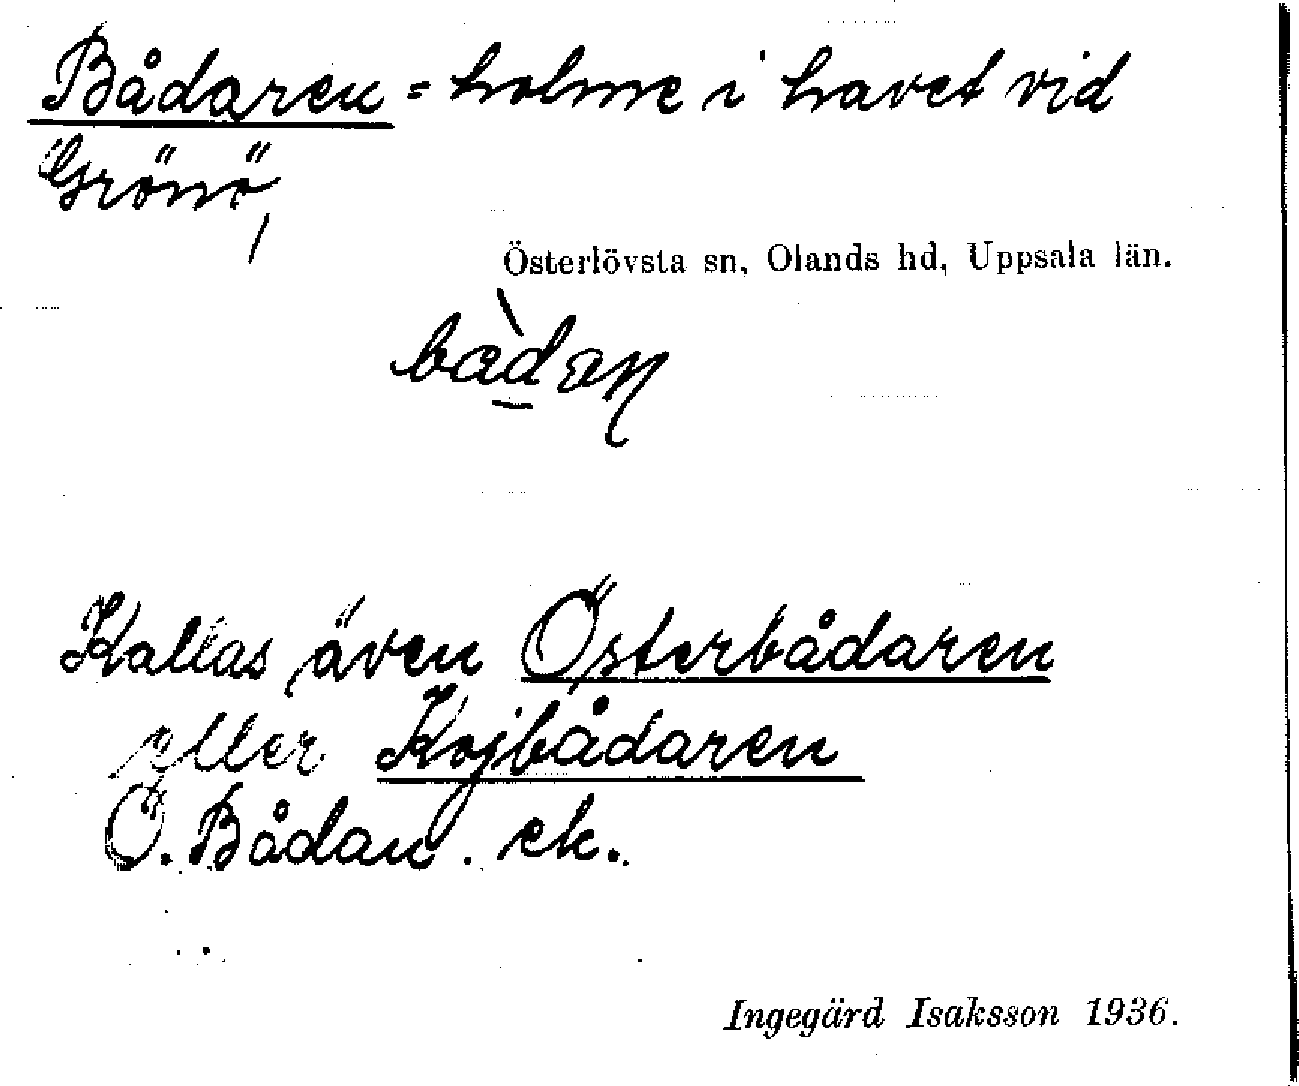 Bådaren = holme i havet vid
Grönö,
Österlövsta sn, Olands hd, Uppsala län.
Kallas även Österbådaren
eller Kojbådaren
Ö. Bådan. ek.
Ingegärd Isaksson 1936.